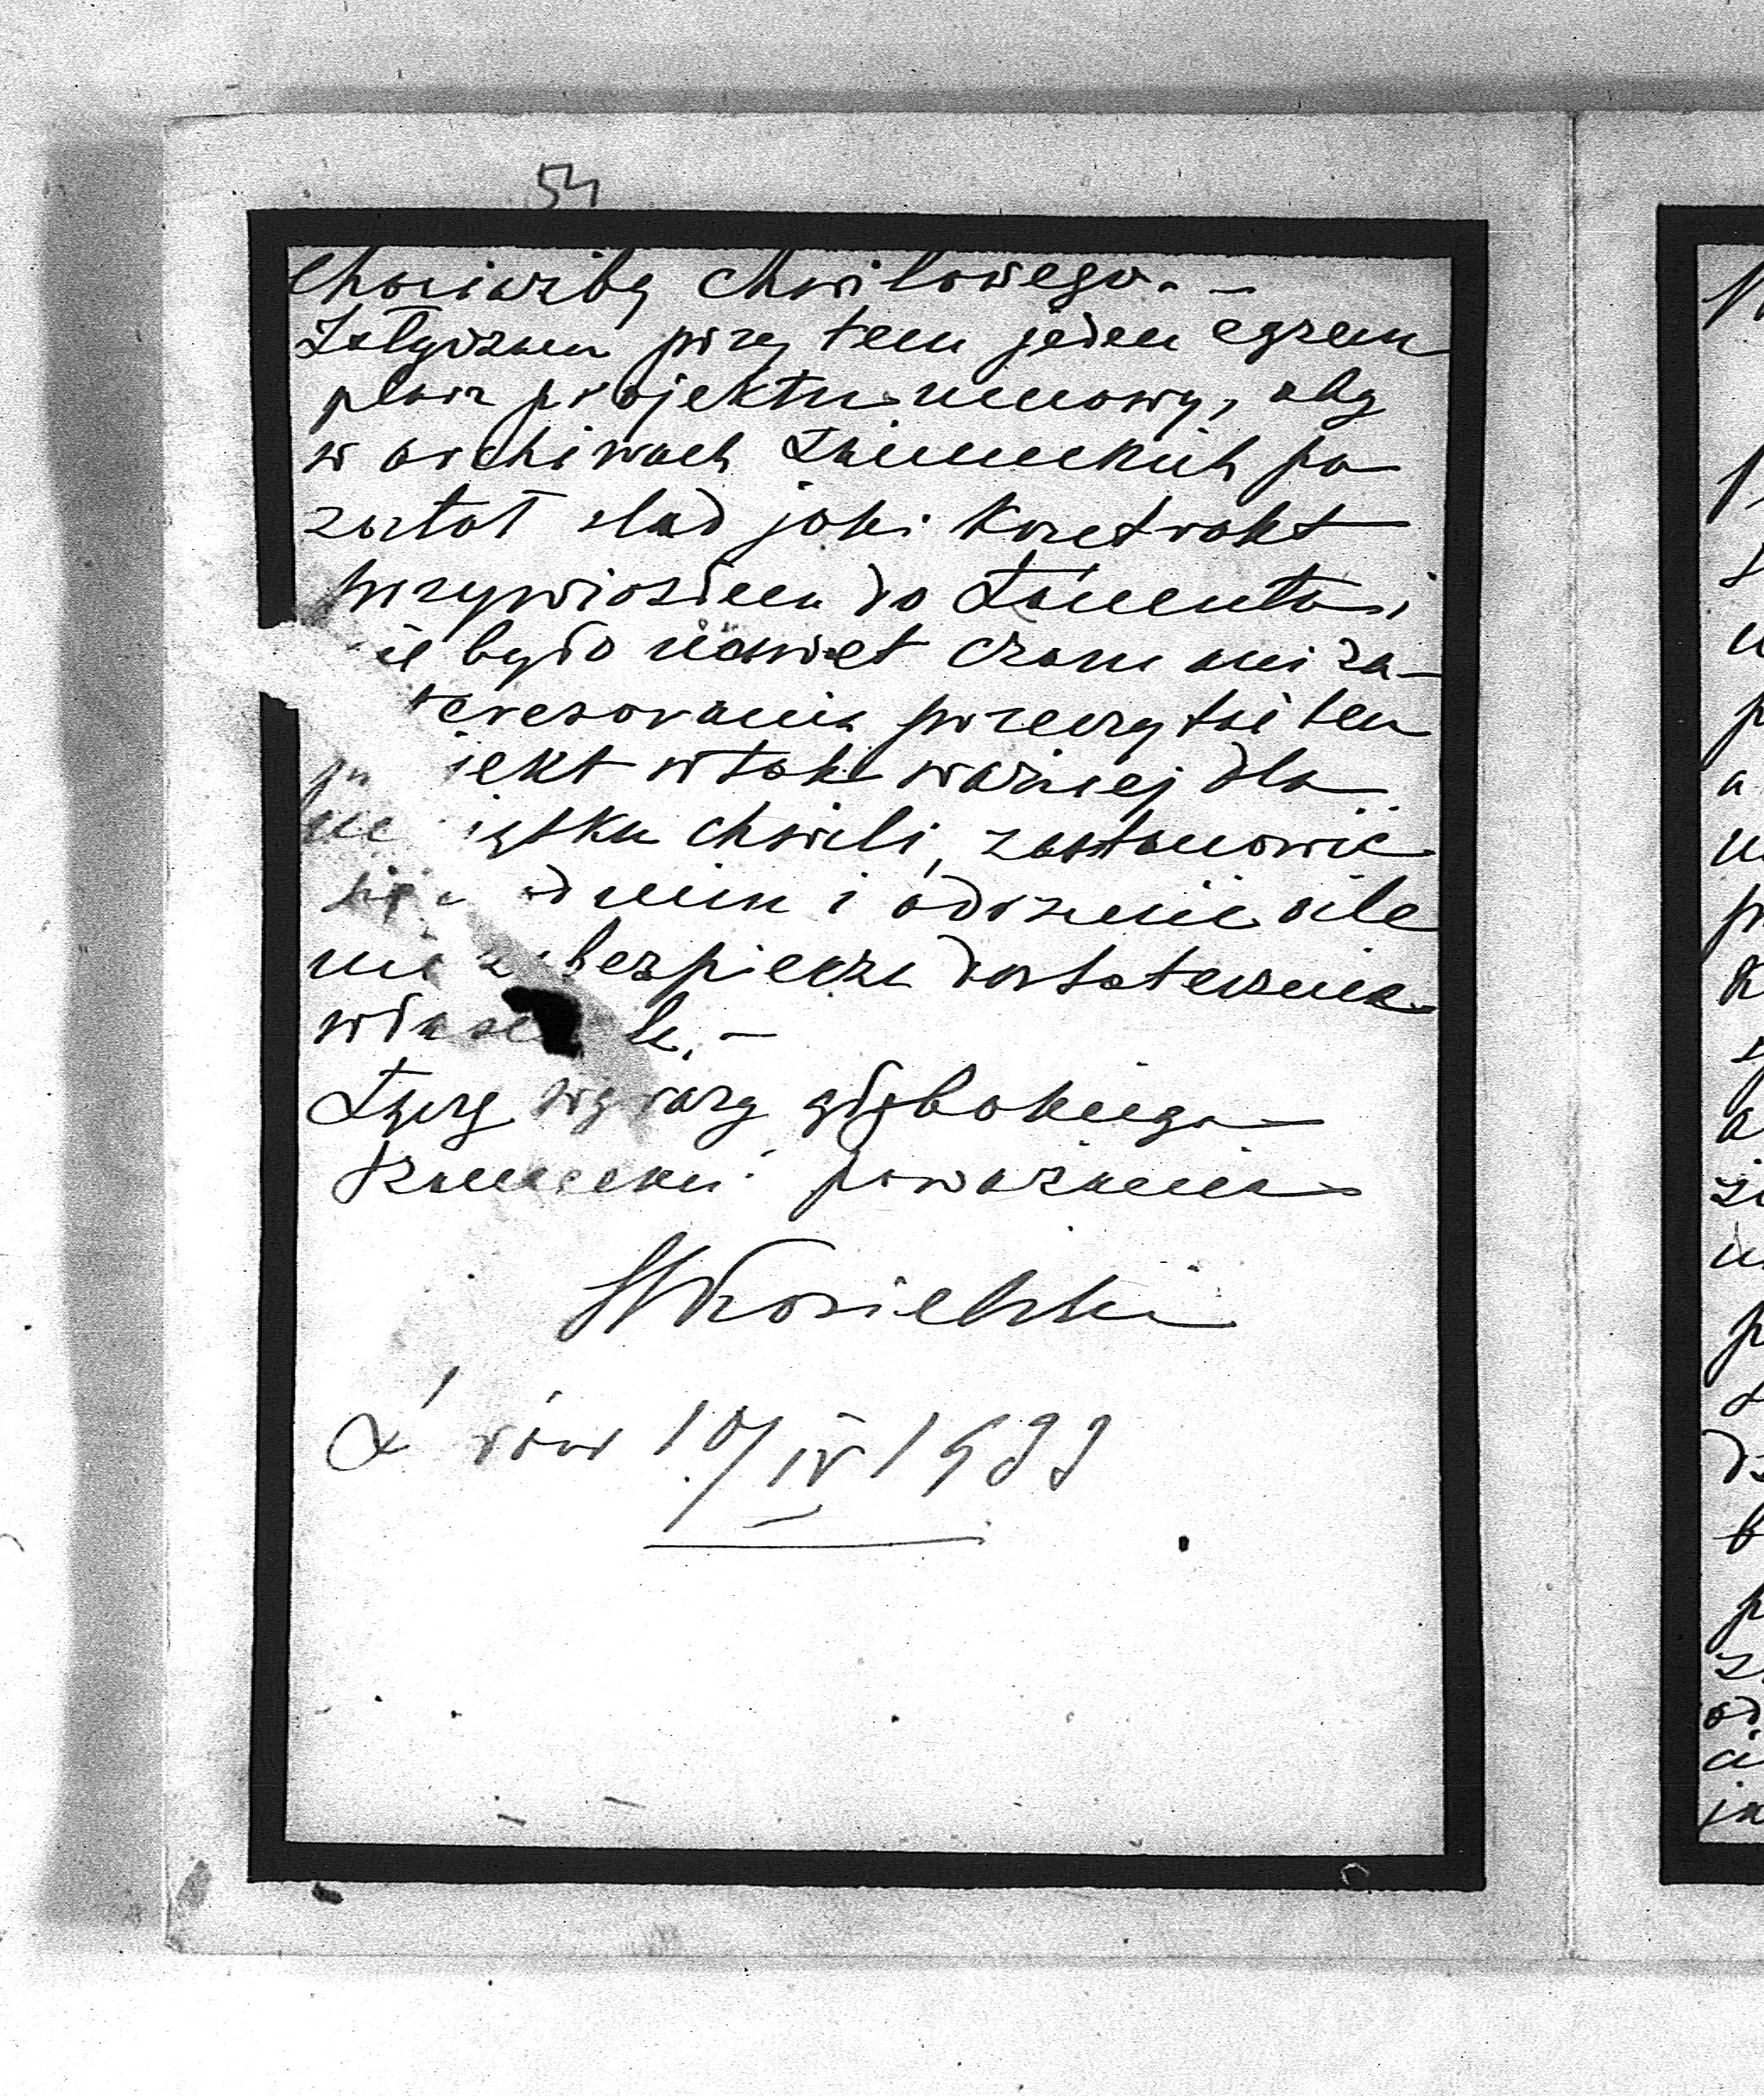 54
chociażby chwilowego. –
Załączam przy tem jeden egzem
plarz projektu umowy, aby
w archiwach Łańcuckich po
został ślad jaki kontrakt
przywiozłem do Łańcuta i
ie było nawet czasu ani za-
teresowania przeczytać ten
jekt w tak ważnej dla
jątku chwili, zastanowić
nim i odrzucić o ile
nie zabezpiecza dostatecznie
Łączę wyrazy głębokiego
szacunku i poważania
Kosielski
10/IV 1933